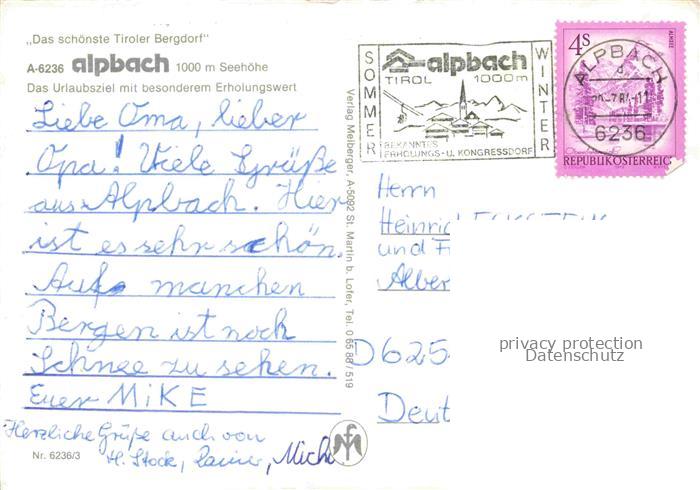 „Das schönste Tiroler Bergdorf“
A-6236 alpbach 1000 m Seehöhe
Das Urlaubsziel mit besonderem Erholungswert
Liebe Oma, lieber
Opa! Viele Grüße
aus Alpbach. Hier
ist es sehr schön.
Auf manchen
Bergen ist noch
Schnee zu sehen.
Euer MiKE
Herzliche Grüße auch von
H. Stock,
Nr. 6236/3
Verlag Melberger, A-5092 St. Martin b. Lofer, Tel. 0 65 88 / 519
SOMMER
alpbach
TIROL 1000m
BEKANNTES
ERHOLUNGS- U. KONGRESSDORF
WINTER
4S
ALMSEE
REPUBLIK ÖSTERREICH
ALPBACH
6236
Herrn
Heinric
und F
Alber
D 625
Deut
privacy protection
Datenschutz